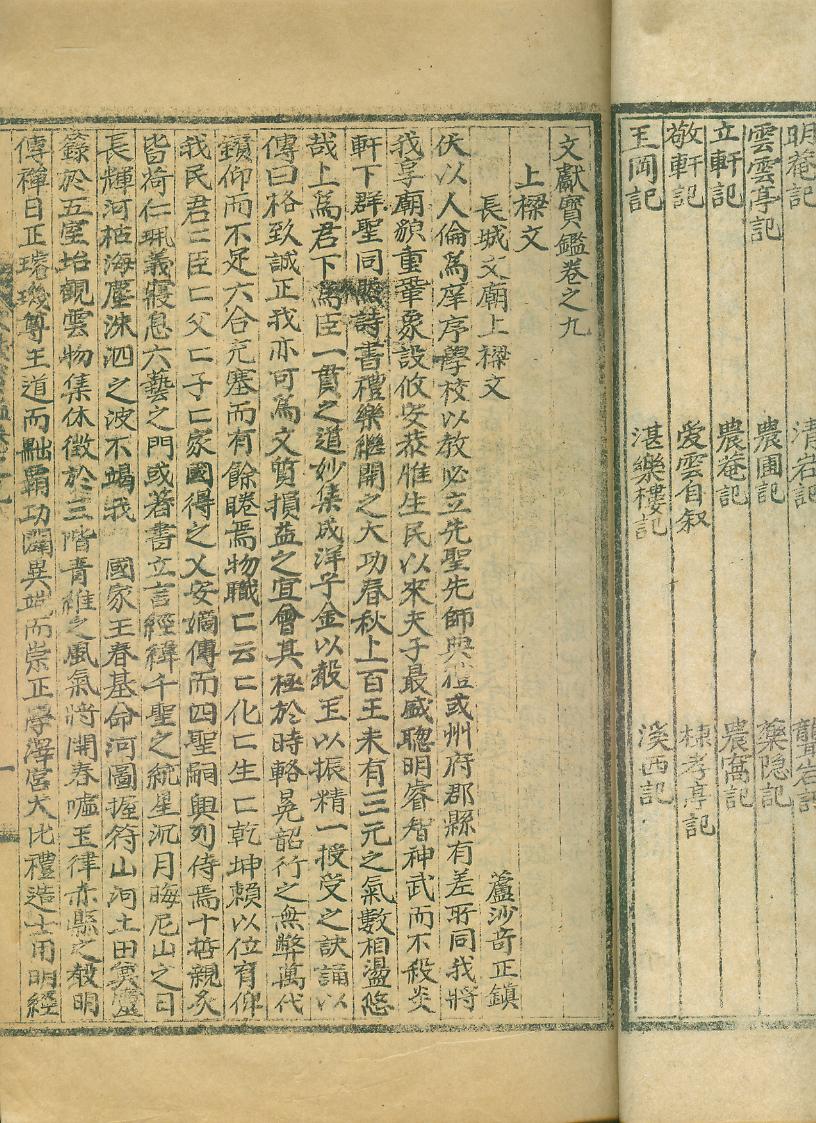 明菴記 清岩記 聾岩記
雲雲亭記 農圃記 藥隐記
立軒記 農菴記 農窩記
敬軒記 愛雲自叙 棣孝亭記
王岡記 湛樂樓記 溪西記
文獻寶鑑卷之九
上樑文
長城文廟上樑文 蘆沙奇正鎮
伏以人倫爲庠序學校以教必立先聖先師與禮或州府郡縣有差所同我將
我享廟貌重鞏象設攸安恭惟生民以來夫子最盛聰明睿智神武而不殺炎
軒下群聖同照詩書禮樂繼開之大功春秋上百王未有三元之氣數相盪悠
哉上爲君下爲臣一貫之道妙集成洋子金以聲玉以振精一授受之訣誦以
傳曰格致誠正我亦可爲文質損益之宜會其極於時輅冕韶行之無弊萬代
鑽仰而不足六合充塞而有餘睠焉物職匚云匚化匚生匚乾坤賴以位育俾
我民君匚臣匚父匚子匚家國得之乂安嫡傳而四聖嗣興列侍焉十哲親炙
皆荷仁珮義寢息六藝之門或著書立言經緯千聖之統星沉月晦尼山之日
長輝河枯海塵洙泗之波不竭我 國家王春基命河圖握符山河土田寘
籙於五室坮觀雲物集休徵於三階青維之風氣將開春噓玉律赤縣之教明
傳禪日正璿璣尊王道而黜覇功闢異端而崇正學澤宮大比禮造士用明經